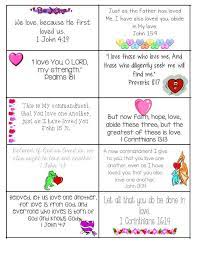 We love, because He first
loved us.
1 John 4:19
Just as the Father has loved
Me, I have also loved you, abide
in My love.
John 15:9
"I love You O LORD,
my strength."
Psalms 18:1
"I love those who love me, And
those who diligently seek me will
find me."
Proverbs 8:17
"This is My commandment,
that you love one another,
just as I have loved you
John 15:12
But now Faith, hope, love,
abide these three; but the
greatest of these is love.
1 Corinthians 13:13
Beloved, if God so loved us, we
also ought to love one another
1 John
A new commandment I give
to you, that you love one
another, even as I have loved
you, that you also love one
another
John
Beloved, let us love one another,
for love is from God; and
everyone who loves is born of
God and knows God.
1 John 4:7
Let all that you do be done in
love.
1 Corinthians 16:14